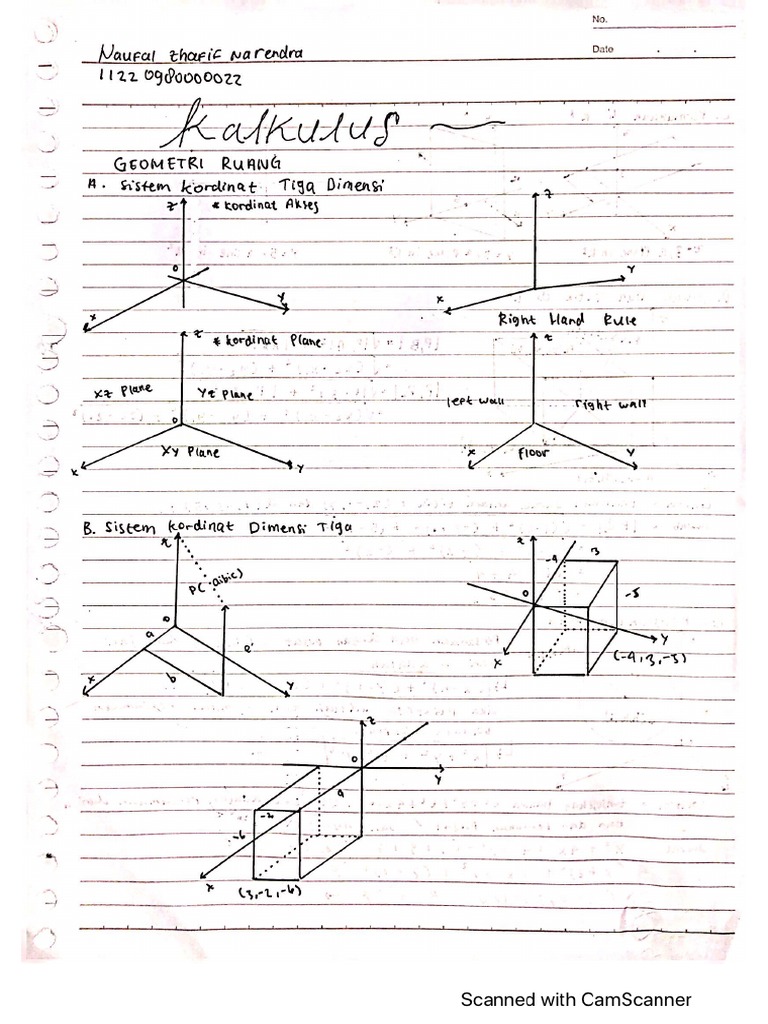 No.
Date . .
Naufal Zhafif Narendra
1122 0980000022
Kalkulus
GEOMETRI RUANG
A. Sistem kordinat Tiga Dimensi
z * kordinat Akses
z
o
x
y
x
y
Right Hand Rule
z * kordinat Plane
z
xz Plane
Yz Plane
left wall
right wall
o
XY Plane
Floor
x
y
x
y
B. Sistem kordinat Dimensi Tiga
z
P( aibic)
o
a
b
x
y
z
-4
3
o
-5
x
y
(-4,3,-5)
z
o
y
-2
-6
x
(3,-2,-6)
Scanned with CamScanner